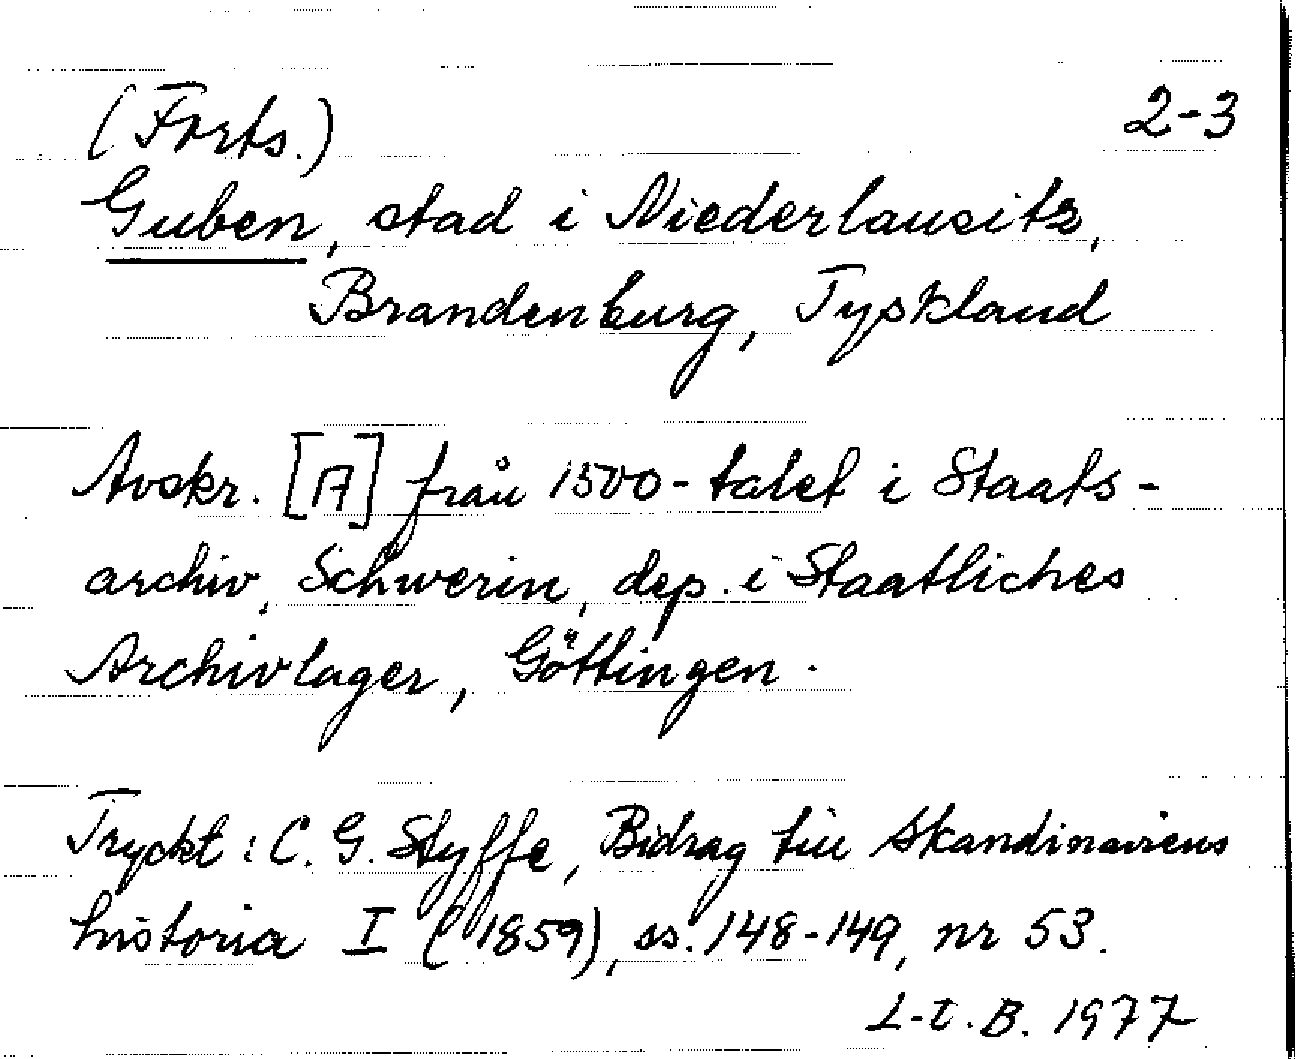 (Forts.) 2-3
Guben, stad i Niederlausitz,
Brandenburg, Tyskland
Avskr. [A] från 1500-talet i Staats-
archiv, Schwerin, dep. i Staatliches
Archivlager, Göttingen.
Tryckt: C. G. Styffe, Bidrag till Skandinaviens
historia I (1859), ss. 148-149, nr 53.
L-t. B. 1977